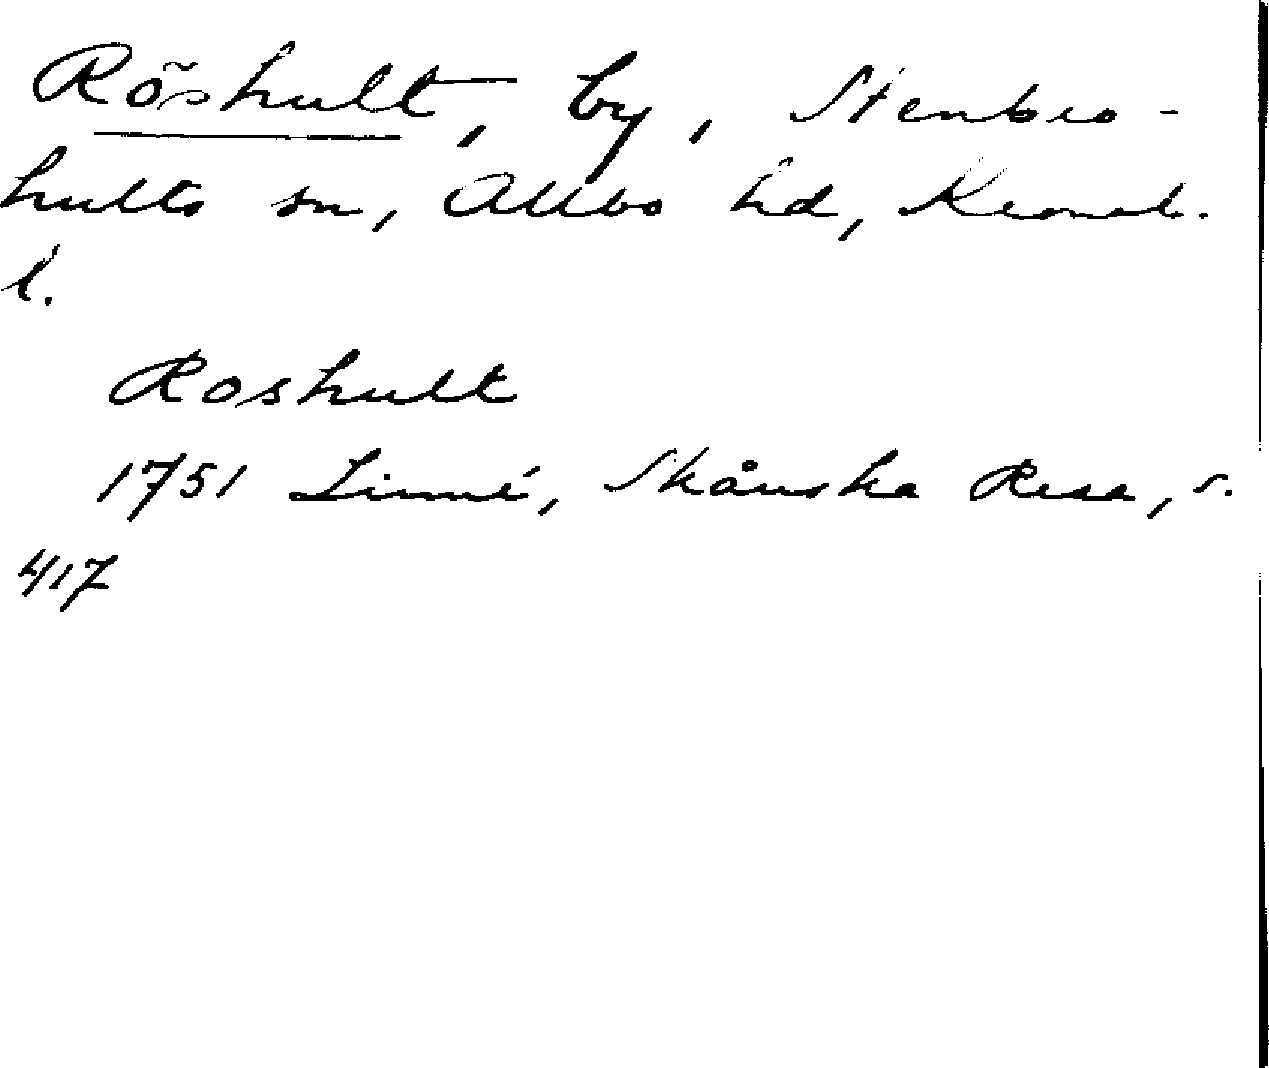 Röshult, by, Stenbro-
hults sn, Allbo hd, Kronob.
l.
Roshult
1751 Linné, Skånska Resa, s.
417